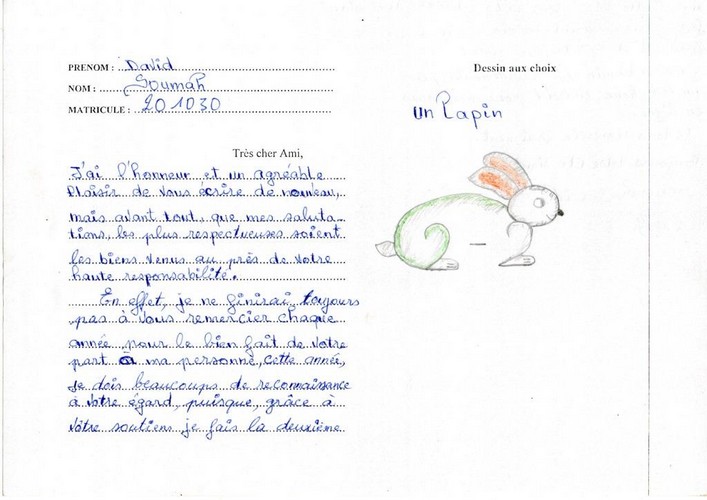 PRENOM : David
NOM : Soumah
MATRICULE : 201030
Très cher Ami,
J'ai l'honneur et un agréable
Plaisir de vous ecrire de nouveau,
mais avant tout, que mes saluta-
tions, les plus respectueuses soient
les biens venus au près de votre
haute responsabilité.
En effet, je ne finirai toujours
pas à vous remercier chaque
année, pour le bien fait de votre
part à ma personne, cette année,
je dois beaucoups de reconnaissance
à votre égard, puisque, grâce à
vôtre soutiens je fais la deuxième
Dessin aux choix
un Lapin